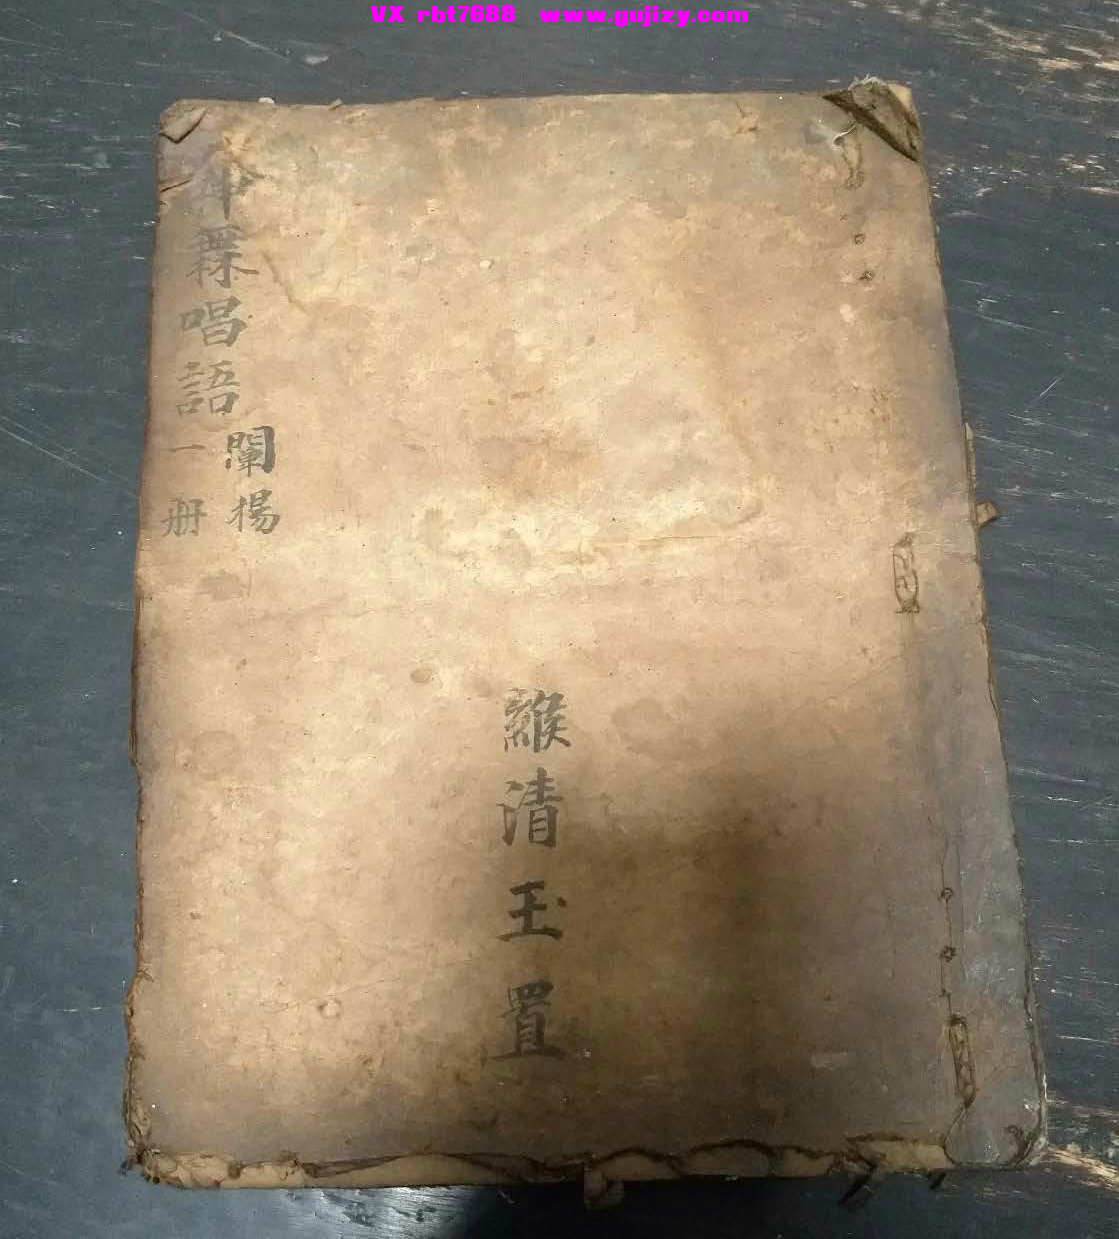 VX rbt7688 www.gujizy.com
唱語
闡揚
一册
緱清玉置